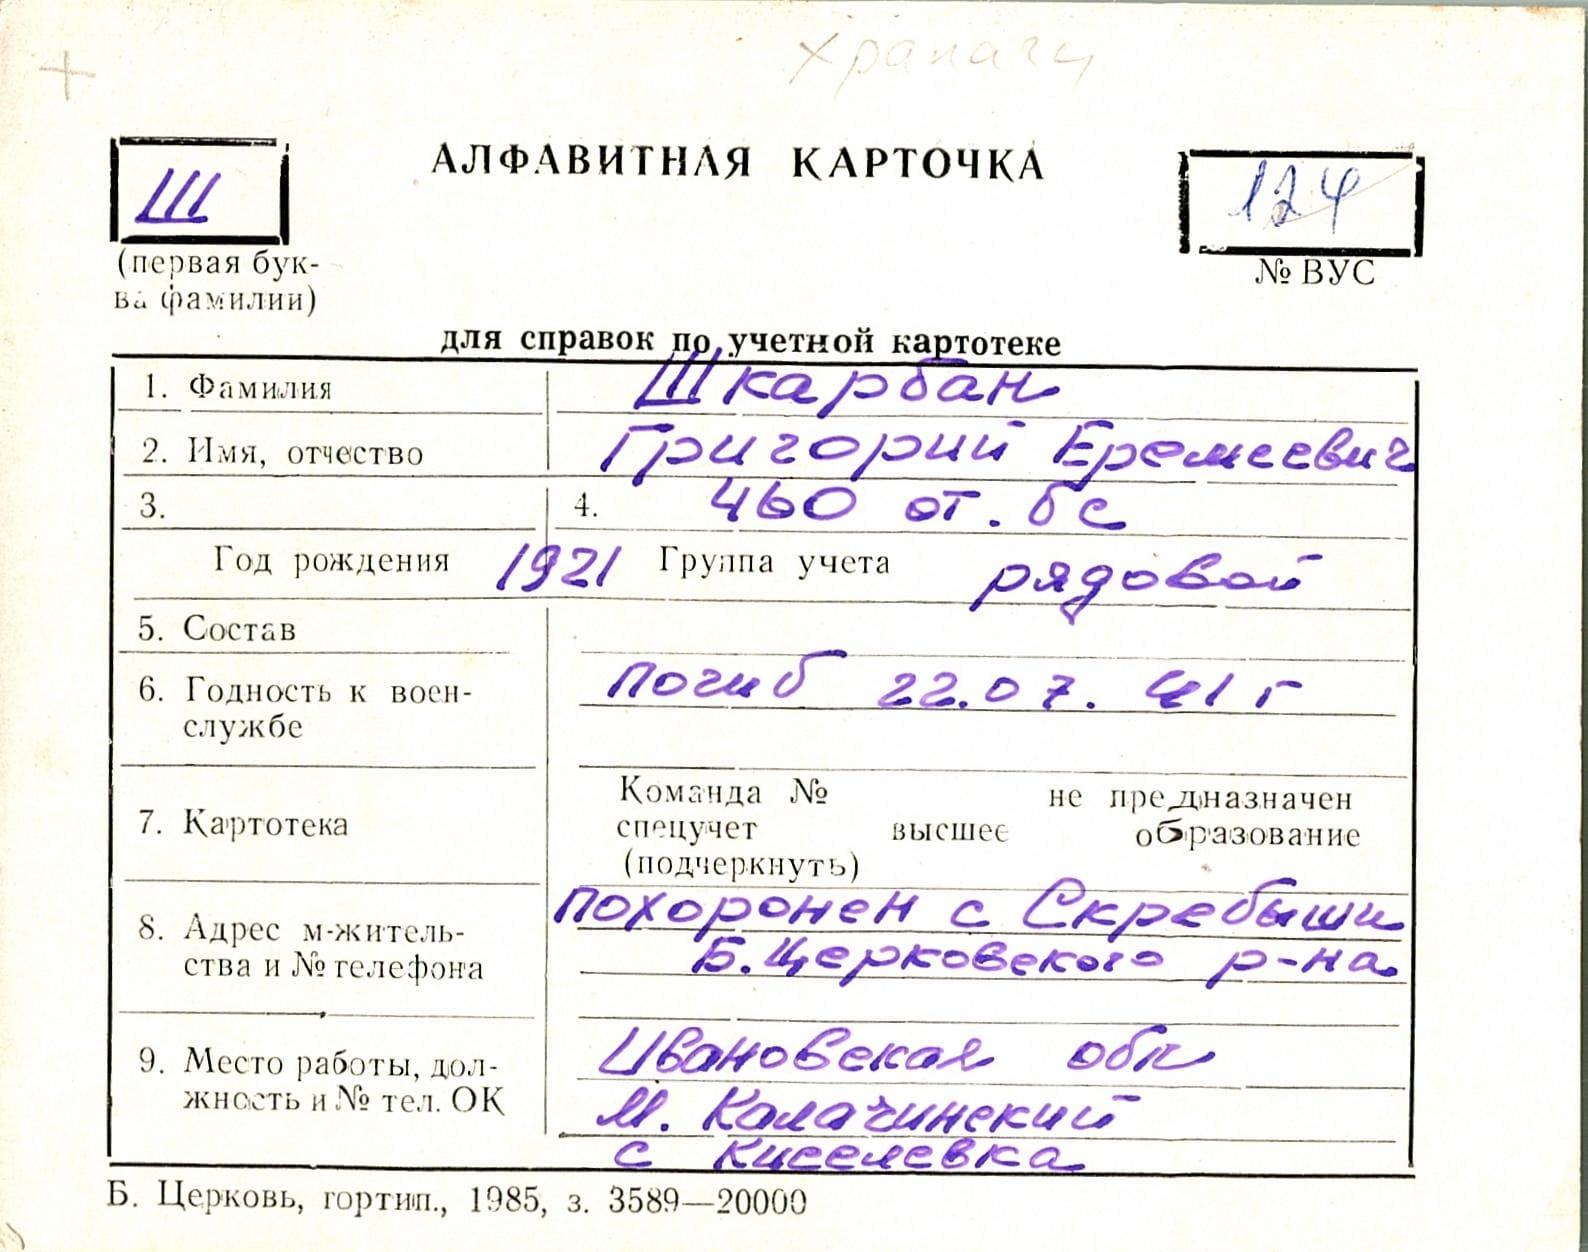 Храпачи
АЛФАВИТНАЯ КАРТОЧКА
Ш
124
(первая бук-
ва фамилии)
№ ВУС
для справок по учетной картотеке
1. Фамилия Шкарбан
2. Имя, отчество Григорий Еремеевич
3. 4. 460 от. бс
Год рождения 1921 Группа учета рядовой
5. Состав
6. Годность к воен- погиб 22.07.41 г
службе
Команда № не предназначен
7. Картотека спецучет высшее образование
(подчеркнуть)
похоронен с Скребыши
8. Адрес м-житель- Б.Церковского р-на
ства и № телефона
Ивановская обл
9. Место работы, дол-
жность и № тел. ОК М. Калачинский
с Киселевка
Б. Церковь, гортип., 1985, з. 3589—20000